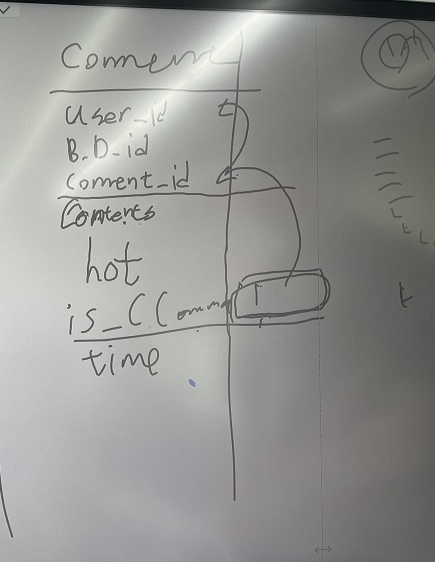 Comment
User_id
B.D_id
Coment_id
Contents
hot
is_CComm
time